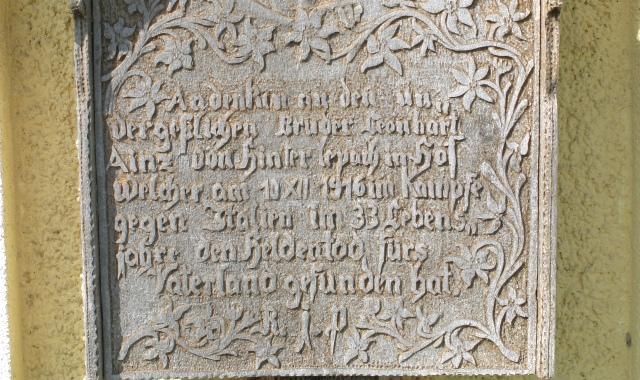 Andenken an den un„
vergeßlichen Bruder Leonhart
Ainz von Hinter lepach in Hof
welcher am 10 XII 1916 im Kampfe
gegen Italien im 33 Lebens„
jahre den Heldentod fürs
Vaterland gefunden hat.
R. I. P